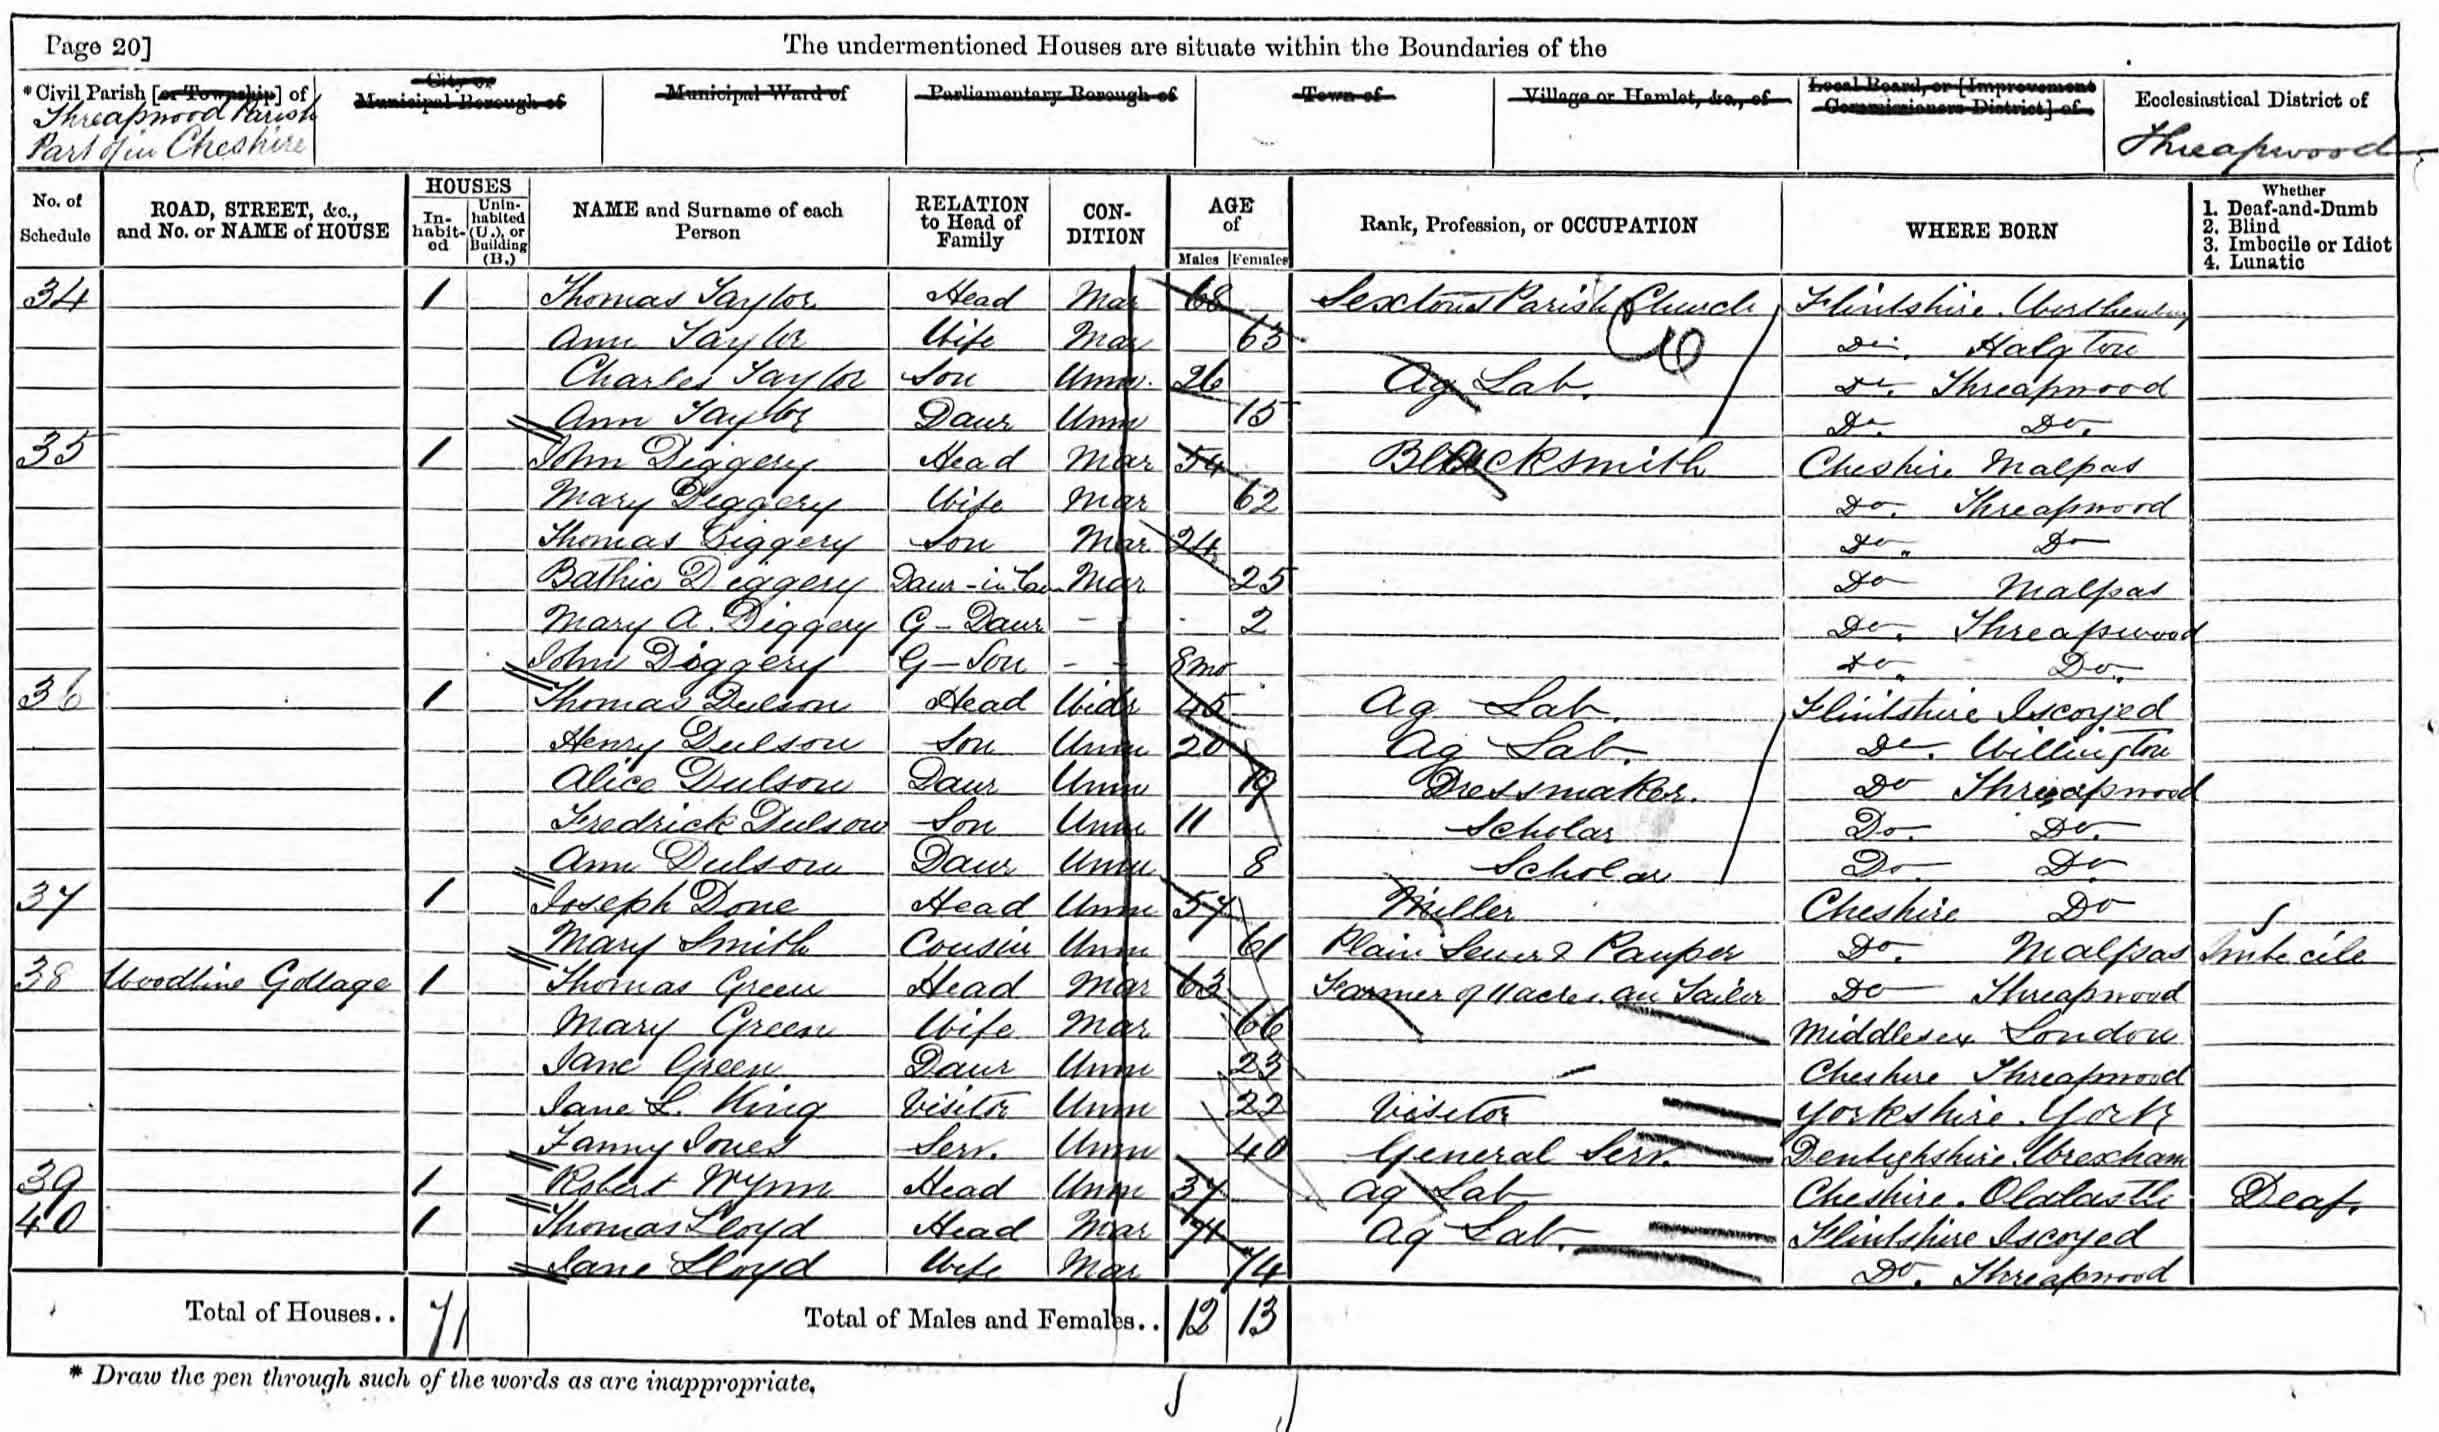 Page 20] The undermentioned Houses are situate within the Boundaries of the
*Civil Parish [or Township] of City or Municipal Borough of Municipal Ward of Parliamentary Borough of Town of Village or Hamlet, &c., of Local Board, or [Improvement Commissioners District] of Ecclesiastical District of
Threapwood Parish
Part of in Cheshire Threapwood
No. of Schedule ROAD, STREET, &c., and No. or NAME of HOUSE HOUSES In-habit-ed Unin-habited (U.), or Building (B.) NAME and Surname of each Person RELATION to Head of Family CON-DITION AGE of Males Females Rank, Profession, or OCCUPATION WHERE BORN Whether 1. Deaf-and-Dumb 2. Blind 3. Imbecile or Idiot 4. Lunatic
34 1 Thomas Taylor Head Mar 68 Sextons Parish Church Flintshire. Worthenbury
Ann Taylor Wife Mar 63 Do. Halgton
Charles Taylor Son Unm. 26 Ag Lab. Do. Threapwood
Ann Taylor Daur Unm 15 Do. Do.
35 1 John Diggery Head Mar 54 Blacksmith Cheshire Malpas
Mary Diggery Wife Mar 62 Do. Threapwood
Thomas Diggery Son Mar 24 Do. Do
Bathie Diggery Daur-in-law Mar 25 Do Malpas
Mary A. Diggery G-Daur - - 2 Do. Threapwood
John Diggery G-Son - - 8mo Do. Do.
36 1 Thomas Dulson Head Widr 45 Ag Lab. Flintshire Iscoyed
Henry Dulson Son Unm 20 Ag Lab. Do. Willington
Alice Dulson Daur Unm 19 Dressmaker. Do Threapwood
Fredrick Dulson Son Unm 11 Scholar Do. Do.
Ann Dulson Daur Unm 8 Scholar Do. Do
37 1 Joseph Done Head Unm 57 Miller Cheshire Do
Mary Smith Cousin Unm 61 Plain Sewer & Pauper Do. Malpas Imbecile
38 Woodbine Cottage 1 Thomas Green Head Mar 63 Farmer of 11 acres. an Tailor Do Threapwood
Mary Green Wife Mar 66 Middlesex London
Jane Green Daur Unm 23 Cheshire Threapwood
Jane L. King Visitor Unm 22 Visitor Yorkshire. York
Fanny Jones Serv. Unm 40 General Serv. Denbighshire. Wrexham
39 1 Robert Wynn Head Unm 37 Ag Lab Cheshire. Oldcastle Deaf.
40 1 Thomas Lloyd Head Mar 74 Ag Lab. Flintshire Iscoyed
Jane Lloyd Wife Mar 74 Do. Threapwood
Total of Houses.. 7 Total of Males and Females.. 12 13
* Draw the pen through such of the words as are inappropriate.